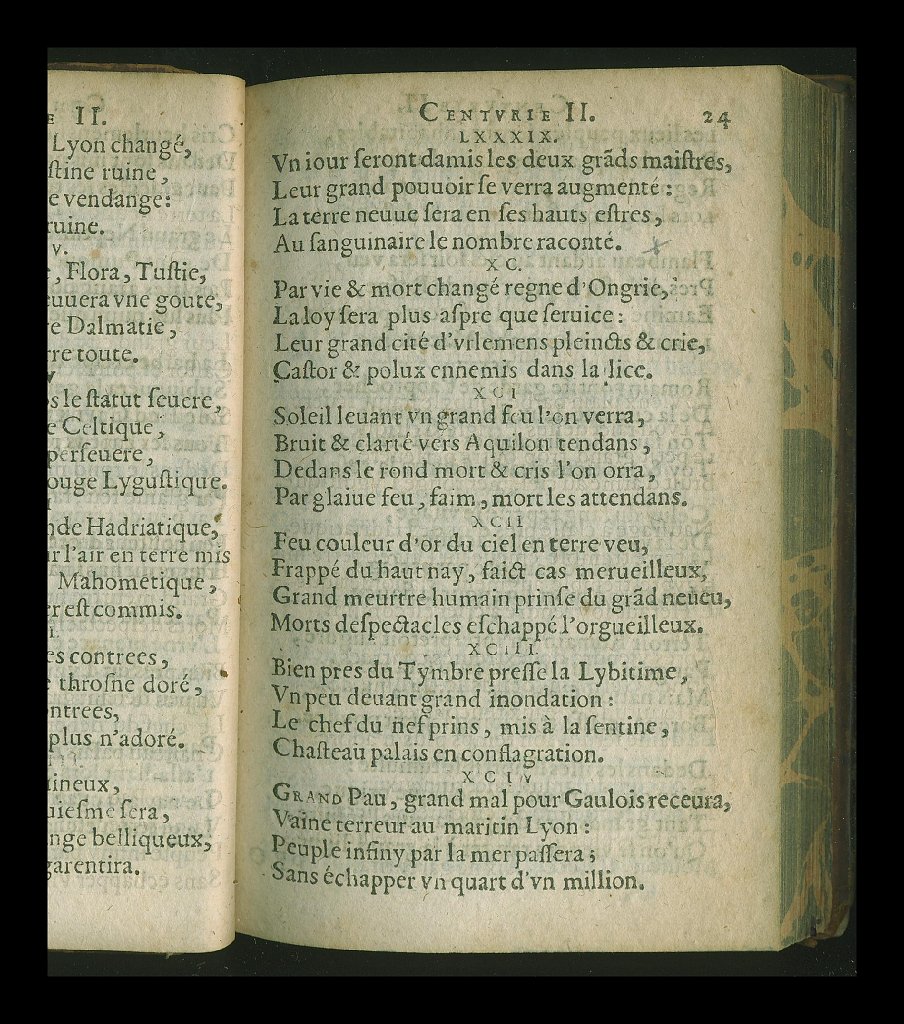 II.
Lyon changé,
ſtine ruine,
e vendange:
ruine.
V.
, Flora, Tuſtie,
euuera vne goute,
re Dalmatie,
rre toute.
V
s le ſtatut ſeuere,
e Celtique,
perſeuere,
ouge Lyguſtique.
nde Hadriatique,
r l'air en terre mis
Mahometique,
er eſt commis.
I.
es contrees,
throſne doré,
ntrees,
plus n'adoré.
ineux,
uieſme ſera,
nge belliqueux,
garentira.
CENTVRIE II. 24
LXXXIX.
Vn iour ſeront damis les deux grãds maiſtres,
Leur grand pouuoir ſe verra augmenté:
La terre neuue ſera en ſes hauts eſtres,
Au ſanguinaire le nombre raconté.
XC.
Par vie & mort changé regne d'Ongrie,
La loy ſera plus aſpre que ſeruice:
Leur grand cité d'vrlemens pleincts & crie,
Caſtor & polux ennemis dans la lice.
XCI
Soleil leuant vn grand feu l'on verra,
Bruit & clarté vers Aquilon tendans,
Dedans le rond mort & cris l'on orra,
Par glaiue feu, faim, mort les attendans.
XCII
Feu couleur d'or du ciel en terre veu,
Frappé du haut nay, faict cas merueilleux,
Grand meurtre humain prinſe du grãd neueu,
Morts deſpectacles eſchappé l'orgueilleux.
XCIII.
Bien pres du Tymbre preſſe la Lybitime,
Vn peu deuant grand inondation:
Le chef du nef prins, mis à la ſentine,
Chaſteau palais en conflagration.
XCIV
GRAND Pau, grand mal pour Gaulois receura,
Vaine terreur au maritin Lyon:
Peuple infiny par la mer paſſera;
Sans échapper vn quart d'vn million.